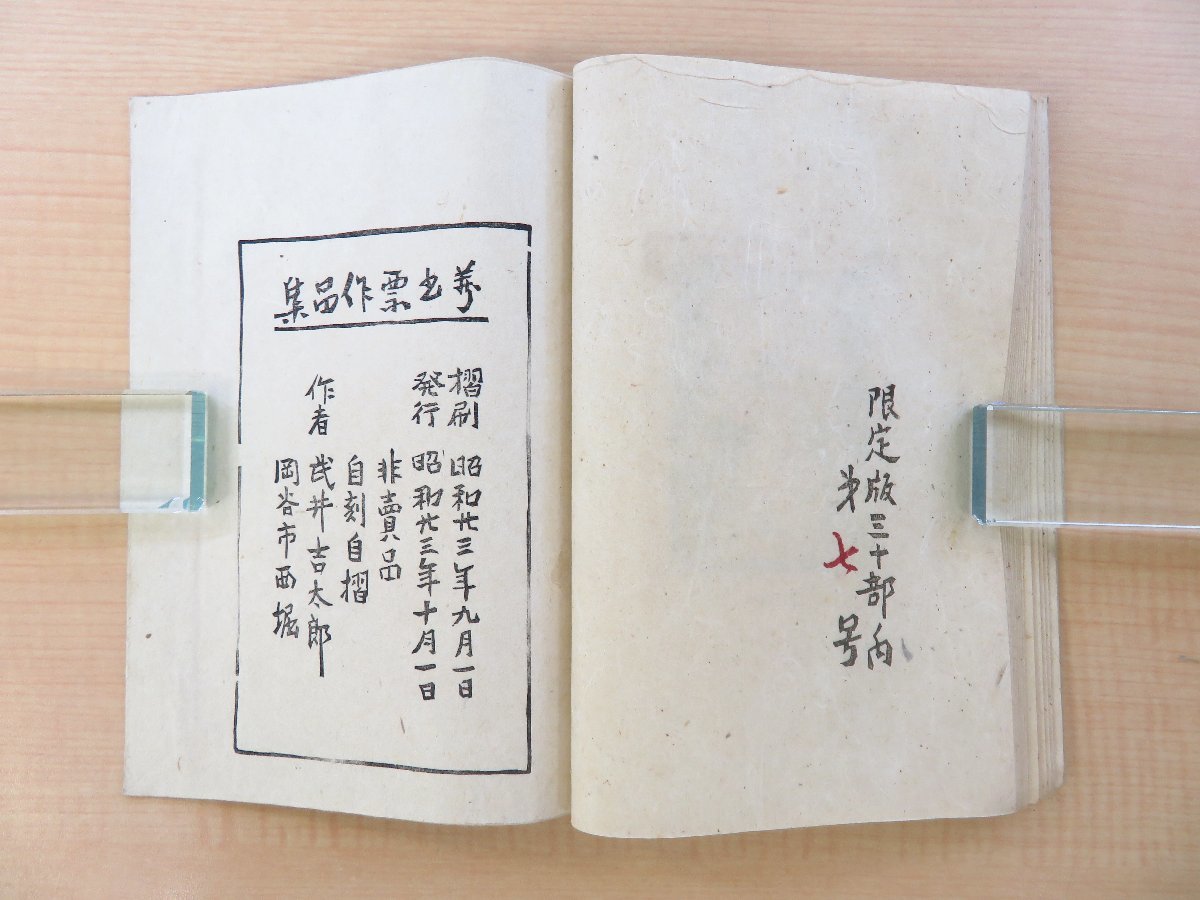 限定版三十部内
第七号
蔵書票作品集
摺刷 昭和廿三年九月一日
発行 昭和廿三年十月一日
非賣品
自刻自摺
作者 武井吉太郎
岡谷市西堀